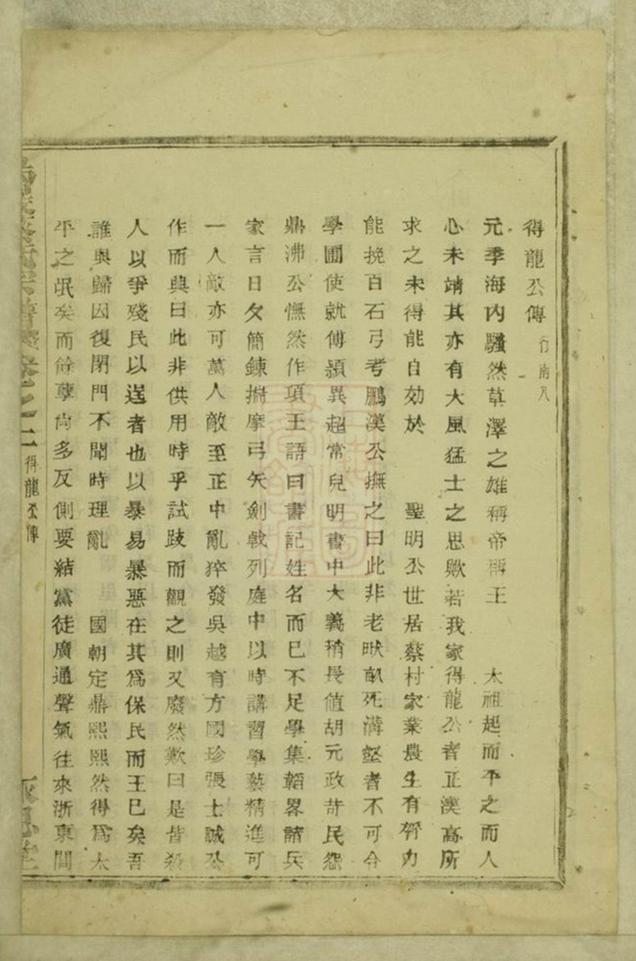 得龍公傳 行南八
元季海內騷然草澤之雄稱帝稱王 太祖起而平之而人
心未靖其亦有大風猛士之思歟若我家得龍公者正漢高所
求之未得能自効於 聖明公世居蔡村家業農生有膂力
能挽百石弓考鵬漢公撫之曰此非老畎畝死溝壑者不可令
學圃使就傅穎異超常兒明書中大義稍長值胡元政苛民怨
鼎沸公憮然作項王語曰書記姓名而已不足學集韜畧諸兵
家言日夕簡鍊揣摩弓矢劍戟列庭中以時講習學藝精進可
一人敵亦可萬人敵至正中亂猝發吳越有方國珍張士誠公
作而興曰此非供用時乎試跂而觀之則又廢然歎曰是皆殺
人以爭殘民以逞者也以暴易暴惡在其為保民而王已矣吾
誰與歸因復閉門不聞時理亂 國朝定鼎熙熙然得為太
平之氓矣而餘孽尚多反側要結黨徒廣通聲氣往來浙東間
宗譜卷之二 得龍公傳